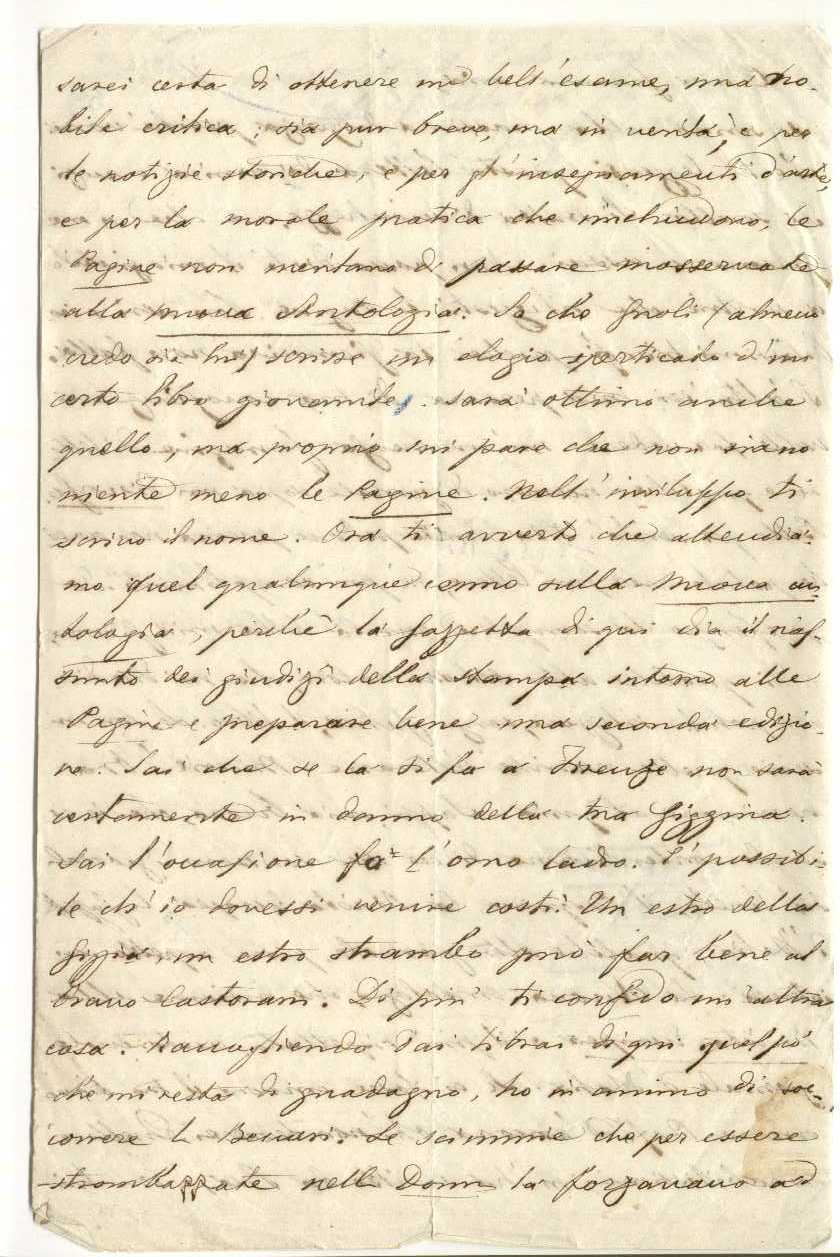 sarei certa di ottenere un bell'esame, una no-
bile critica; sia pur breve, ma in verità, e per
le notizie storiche, e per gl'insegnamenti d'arte,
e per la morale pratica che inchiudono, le
Pagine non meritano di passare inosservate
alla nuova Antologia. So che Gnoli (almeno
credo sia lui) scrisse un elogio sperticato d'un
certo libro giovanile. Sarà ottimo anche
quello, ma proprio mi pare che non siano
niente meno le Pagine. Nell'inviluppo ti
scrivo il nome. Ora ti avverto che attendia-
mo quel qualunque cenno sulla Nuova an-
tologia, perchè la Gazzetta di qui dia il rias-
sunto dei giudizî della stampa intorno alle
Pagine e preparare bene una seconda edizio-
ne. Sai che se la si fa a Firenze non sarà
certamente in danno della tua Giggina.
Sai l'occasione fa l'omo ladro. E' possibi-
le ch'io dovessi venire costì. Un estro della
Gigia, un estro strambo può far bene al
bravo Castorani. Di più ti confido un'altra
cosa. Raccogliendo dai librai di qui quel pò
che mi resta di guadagno, ho in animo di soc-
correre la Beccari. Le scimmie che per essere
strombazzate nella Donna la forzavano ad